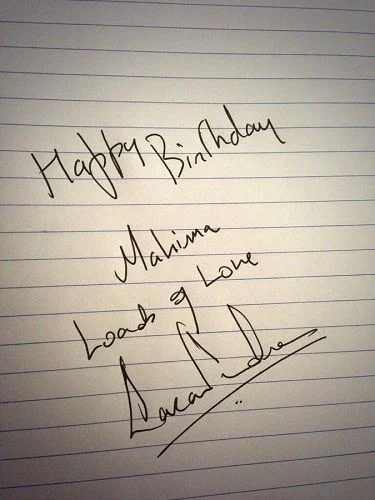 Happy Birthday
Mahima
Loads of Love